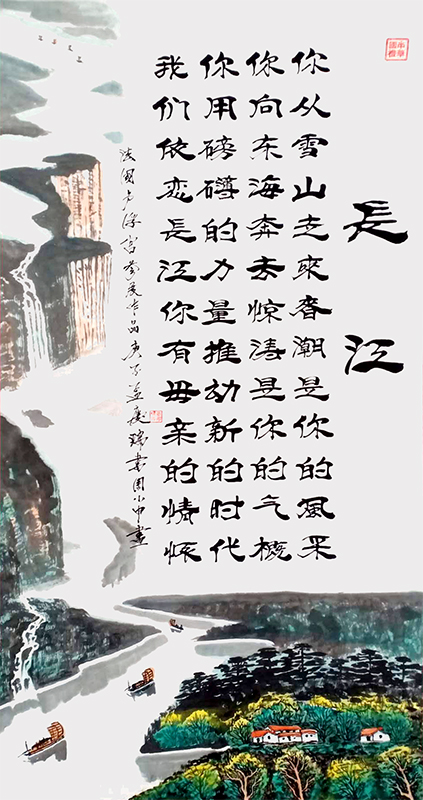 長江
你从雪山走來春潮是你的風采
你向东海奔去惊涛是你的气概
你用磅礴的力量推动新的时代
我们依恋長江你有母亲的情怀
法國卢浮宫展作品庚子瑞書周小申畫